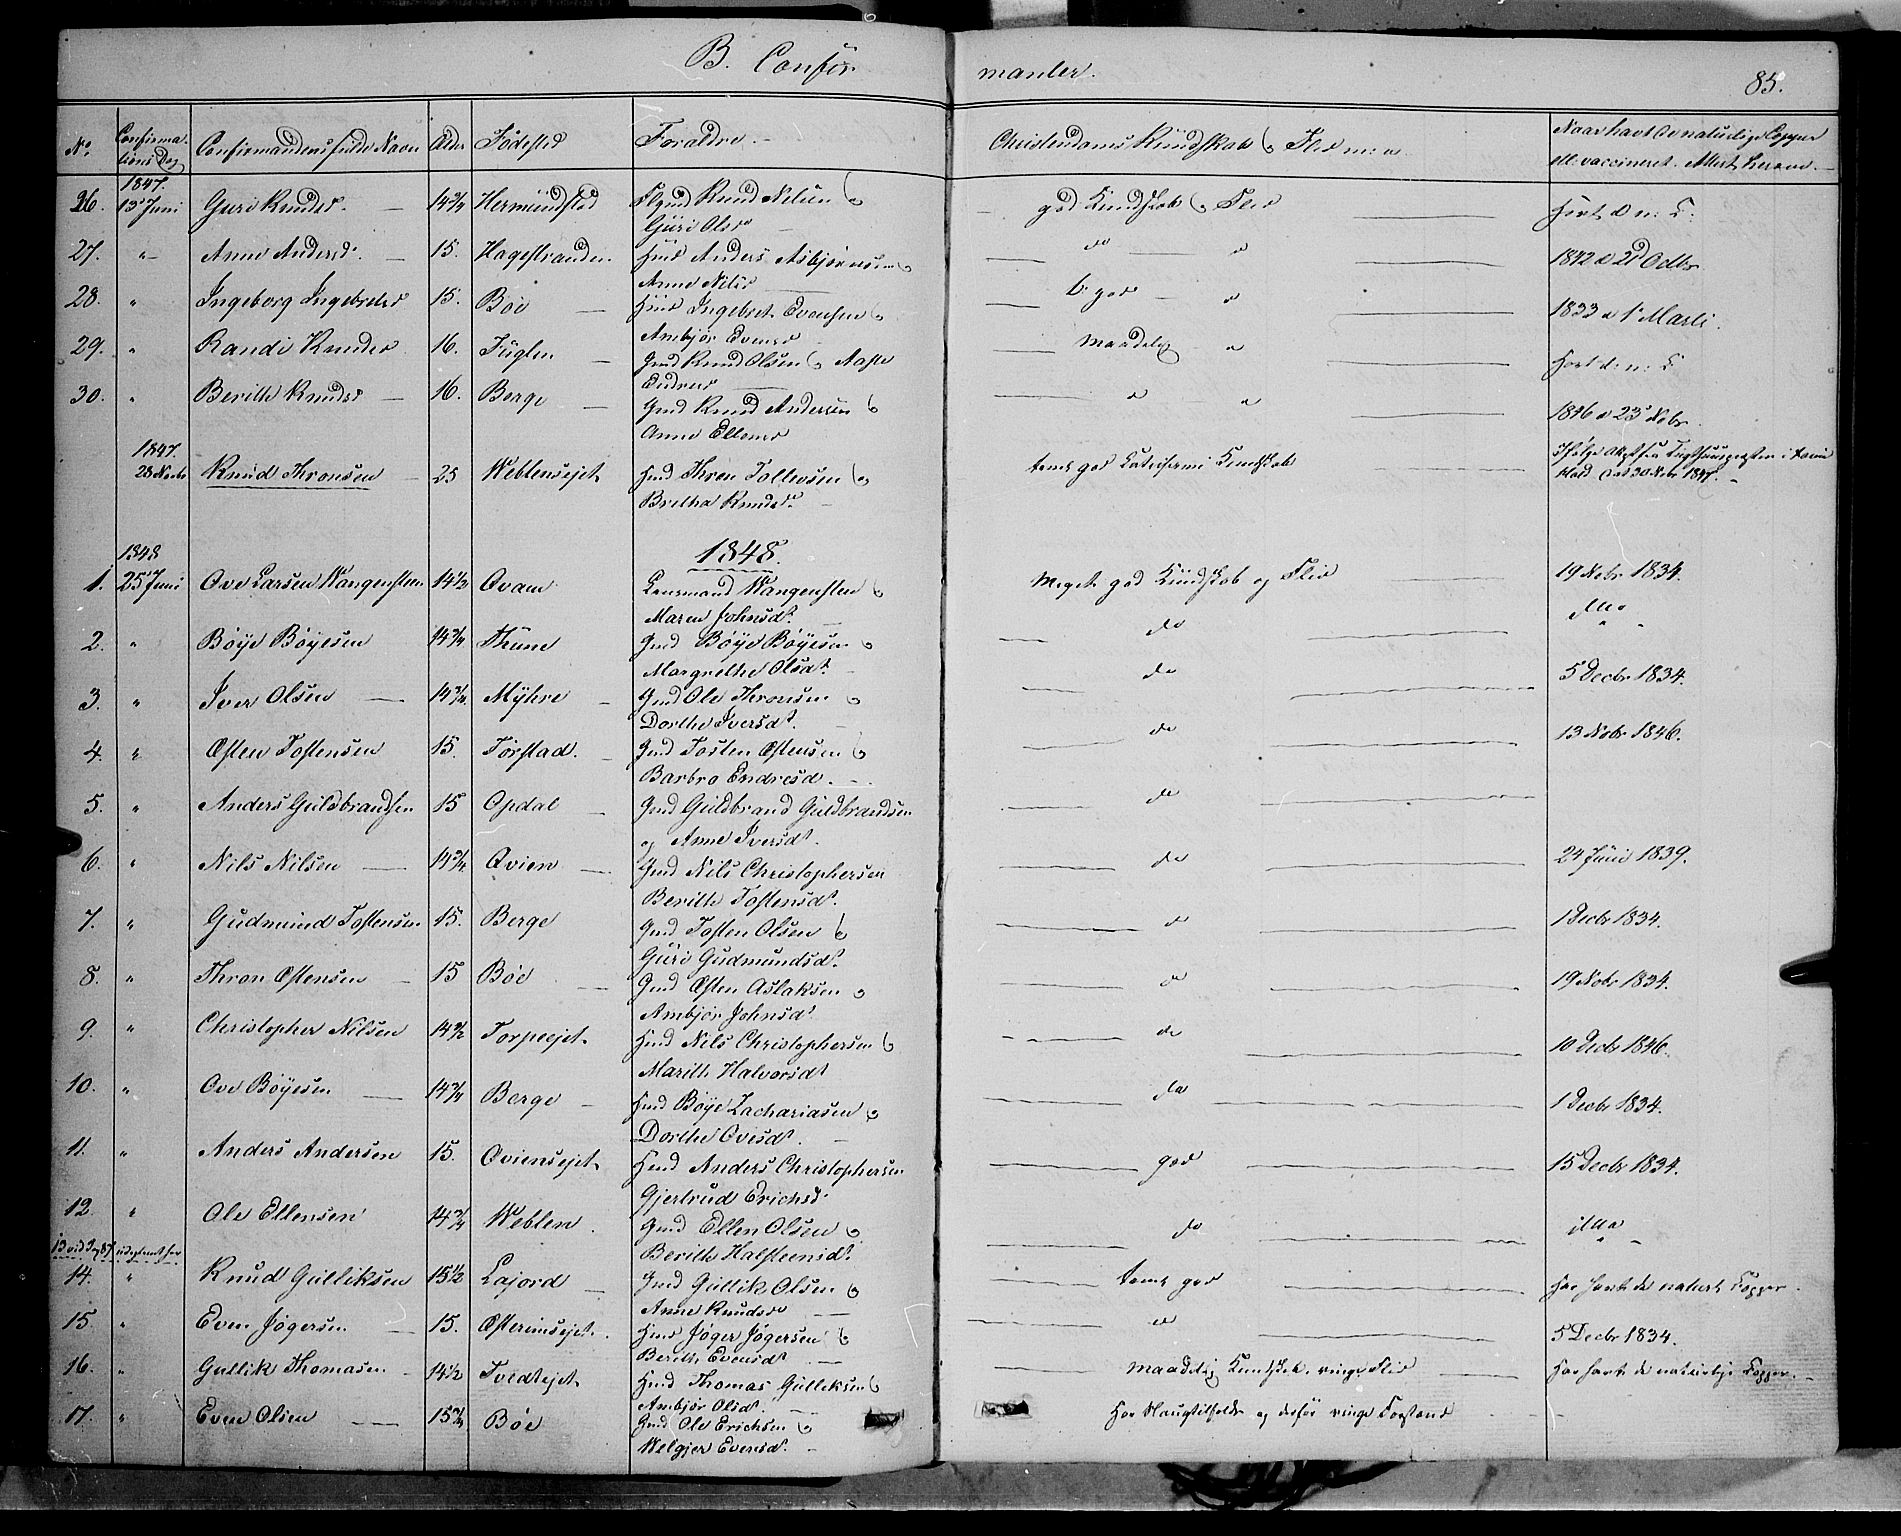 B. Confir manter. 85.
No. Confirmations Dag Confirmandens fulde Navn Alder Fødested Foreldre Christendoms Kundskab & Flid m.v. Naar havt de naturlige Copper
ell. vaccineret. Attest herom.
1847.
26. 13 Juni Guri Knudsd. 14 3/4 Hermundstad Knud Nilsen &
Guri Olsd
god Kundskab & Flid
27. " Anne Andersd. 15. Hagestranden Hmd Anders Asbjørnsen &
Anne Nilsd
do " 1842 d 21 Octbr
28. " Ingeborg Ingebretsd 15. Bøe Hmd Ingebret Evensen &
Ambjør Evensd
t. god " 1833 d 1 Marti.
29. " Randi Knudsd 16. Fuglen Gmd Knud Olsen & Aaste
Endresd
maadelig "
30. " Berithe Knudsd 16. Berge Gmd Knud Andersen &
Anne Ellensd
" " 1846 d 23 Nobr.
1847.
28 Novbr Knud Thronsen 25 Weblensejet Hmd Thron Tollevsen &
Britha Knudsd.
temt god Kundskab
1848 1848.
1. 25 Juni Ove Larsen Wangensteen 14 1/2 Qvam Lensmand Wangensteen &
Maren Johnsdt.
Meget god Kundskab og Flid 19 Nobr 1834.
2. " Bøye Bøyesen 14 3/4 Thune Gmd Bøye Bøyesen &
Margrethe Olsdt.
do ditto
3. " Iver Olsen 14 3/4 Myhre Gmd Ole Thronsen &
Dorthe Iversdt.
do 5 Decbr 1834.
4. " Østen Tostensen 15. Torstad. Gmd Tosten Østensen &
Barbro Endresd.
do 13 Nobr 1846.
5. " Anders Guldbrandsen 15 Opdal Gmd Guldbrand Guldbrandsen
og Anne Iversdt.
do
6. " Nils Nilsen 14 3/4 Qvien Gmd Nils Christophersen
Berithe Tostensdt.
do 24 Juni 1839.
7. " Gudmund Tostensen 15. Berge Gmd Tosten Olsen &
Guri Gudmundsdt.
do 1 Decbr 1834.
8. " Thron Østensen 15 Bøe Gmd Østen Aslaksen &
Ambjør Johnsdt
do 19 Nobr 1834.
9. " Christopher Nilsen 14 1/2 Torpeejet Hmd Nils Christophersen &
Marith Halvorsdt
do 10 Decbr 1846.
10. " Ove Bøyesen 14 3/4 Berge Hmd Bøye Zachariasen &
Dorthe Ovesdt.
do 1 Decbr 1834.
11. " Anders Andersen 15. Qviensejet Hmd Anders Christophersen
Gjertrud Erichsd.
god 15 Decbr 1834.
12. " Ole Ellensen 14 3/4 Weblen. Gmd Ellen Olsen &
Berithe Halsteensdt.
do ditto
14. " Knud Gulliksen 15 1/2 Lajord Gmd Gullik Olsen &
Anne Knudsd
temt god har havt de naturl Copper.
15. " Even Jøgersen 15. Hmd Jøger Jøgersen &
Berith Evensdt.
do 5 Decbr 1834.
16. " Gullik Thomasen 14 1/2 Tvedtejet Hmd Thomas Gulliksen &
Ambjør Olsdt.
maadelig Kundskab, ringe Flid har havt de naturlige Copper.
17. " Even Olsen 15 3/4 Bøe Gmd Ole Erichsen &
Welgjer Evensdt.
og derfor ringe Forstand